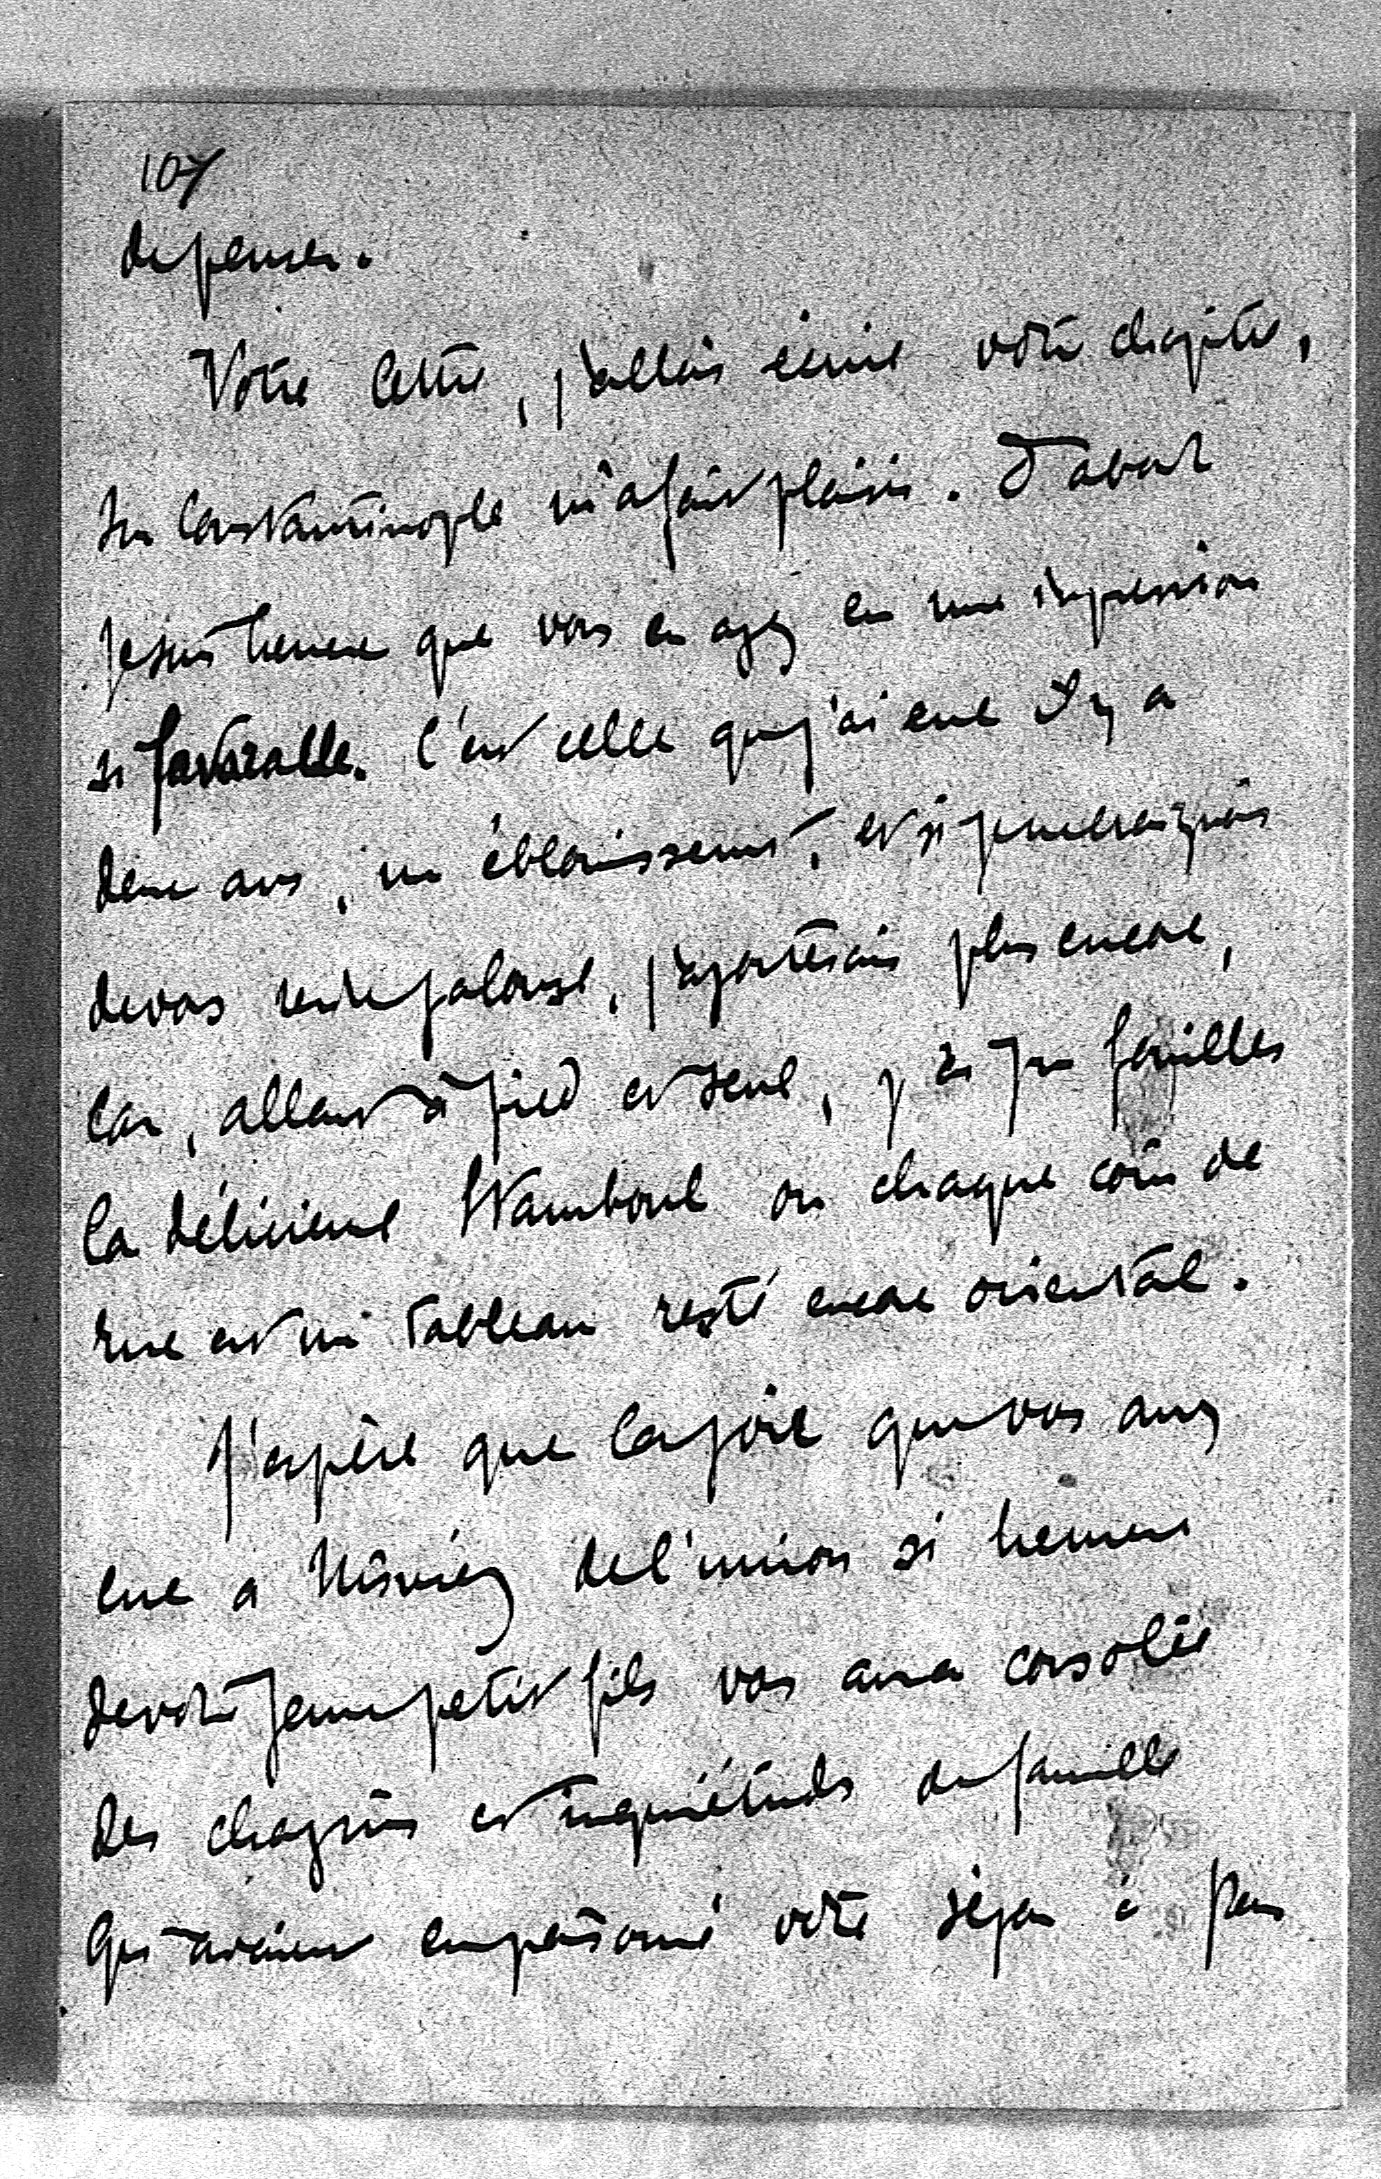 107
depenser.
Votre lettre, j'allais écrire votre chapitre,
sur Constantinople m'a fait plaisir. D'abord
je suis heureux que vous en ayez eu une impression
si favorable. C'est celle que j'ai eue il y a
deux ans, un éblouissement, et si je ne craignais
de vous rendre jalouse, j'ajouterais plus encore,
car, allant à pied et seul, j'ai pu fouiller
la délicieuse Stamboul où chaque coin de
rue est un tableau resté encore oriental.
J'espère que la joie que vous avez
eue a de l'union si heureuse
de votre jeune petit fils vous aura consolée
des chagrins et inquiétudes de famille
qui avaient empoisonné votre séjour à Paris